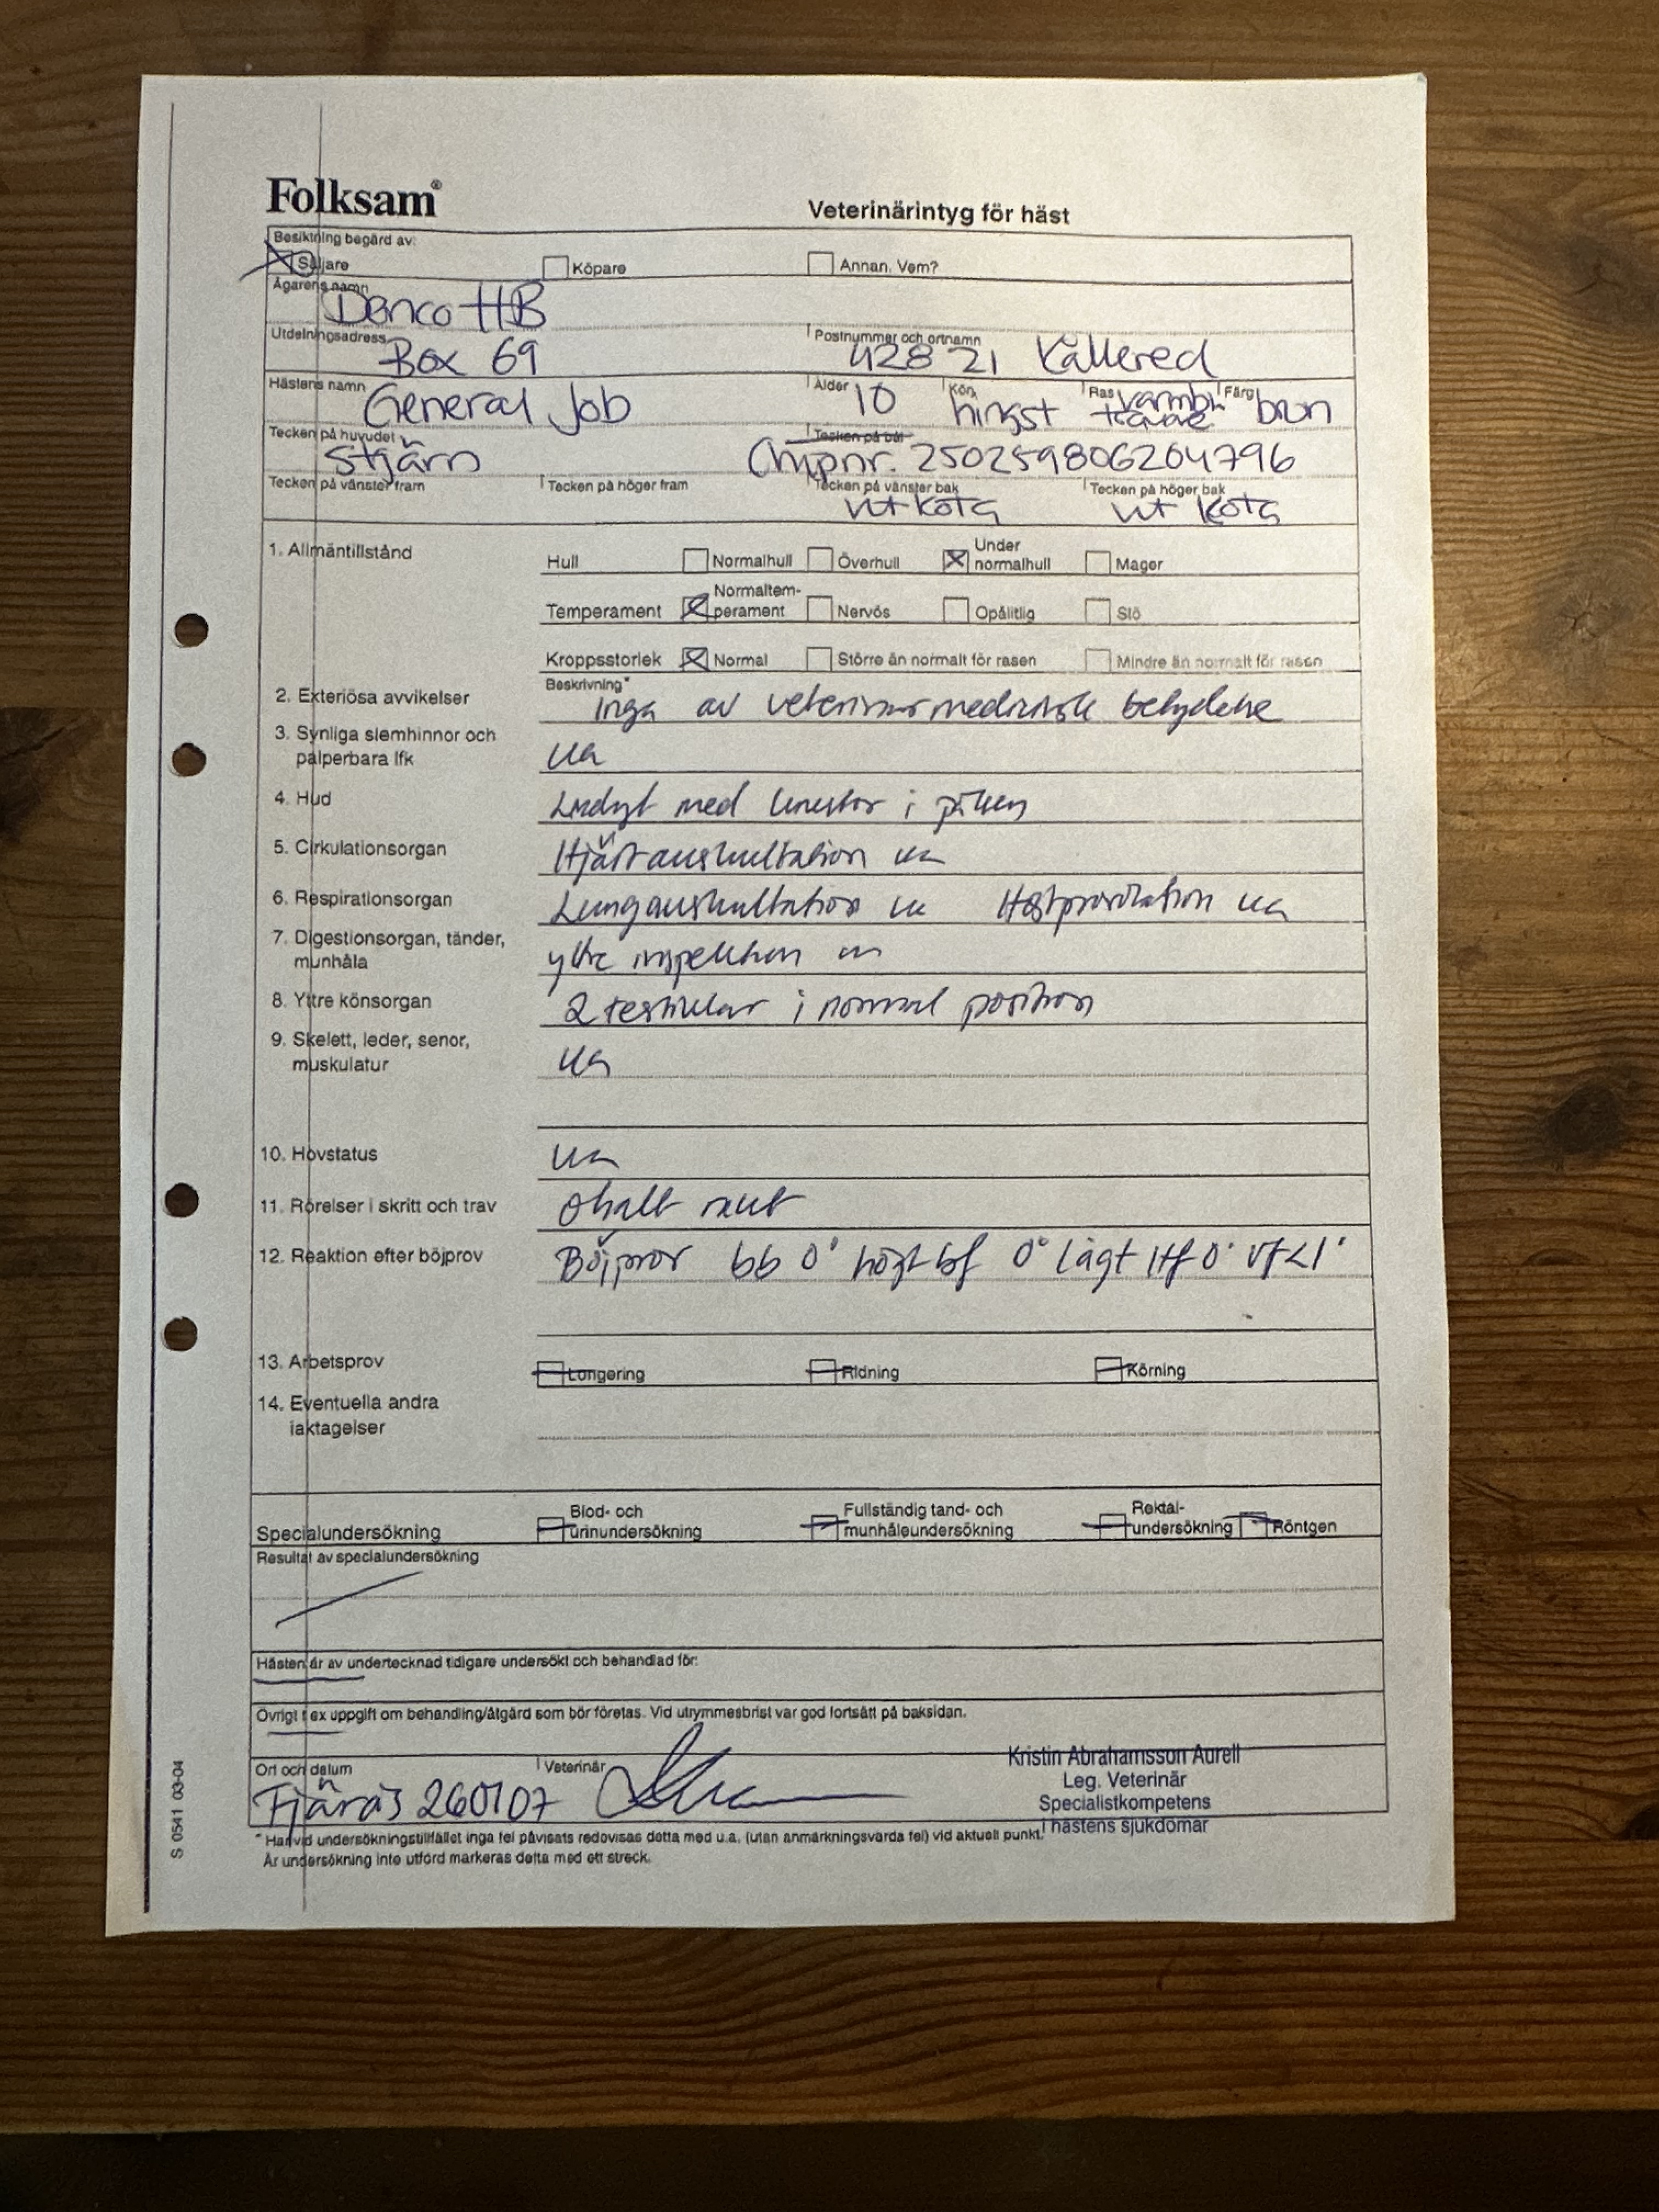 Folksam®
Veterinärintyg för häst
Besiktning begärd av:
Säljare Köpare Annan. Vem?
Ägarens namn
Danco HB
Utdelningsadress Postnummer och ortnamn
Box 69 428 21 Kållered
Hästens namn Ålder Kön Ras Färg
General Job 10 hingst varmbl travare brun
Tecken på huvudet Tecken på bål
Stjärn Chipnr. 250259806204796
Tecken på vänster fram Tecken på höger fram Tecken på vänster bak Tecken på höger bak
vit kota vit kota
1. Allmäntillstånd Hull Normalhull Överhull Under normalhull Mager
Temperament Normaltem-perament Nervös Opålitlig Slö
Kroppsstorlek Normal Större än normalt för rasen Mindre än normalt för rasen
Beskrivning*
2. Exteriösa avvikelser Inga av veterinärmedicinsk betydelse
3. Synliga slemhinnor och
palperbara lfk ua
4. Hud med i
5. Cirkulationsorgan Hjärtauskultation ua
6. Respirationsorgan Lungauskultation ua Hostprovokation ua
7. Digestionsorgan, tänder,
munhåla yttre inspektion ua
8. Yttre könsorgan 2 testiklar i normal position
9. Skelett, leder, senor,
muskulatur ua
10. Hovstatus ua
11. Rörelser i skritt och trav ohalt rakt
12. Reaktion efter böjprov Böjprov bb 0° högt bf 0° lågt Hf 0° Vf <1°
13. Arbetsprov Longering Ridning Körning
14. Eventuella andra
iakttagelser
Specialundersökning Blod- och urinundersökning Fullständig tand- och munhåleundersökning Rektal-undersökning Röntgen
Resultat av specialundersökning
Hästen är av undertecknad tidigare undersökt och behandlad för:
Övrigt t ex uppgift om behandling/åtgärd som bör företas. Vid utrymmesbrist var god fortsätt på baksidan.
Ort och datum Veterinär
Fjärås 260107
Kristin Abrahamsson Aurell
Leg. Veterinär
Specialistkompetens
i hästens sjukdomar
* Har vid undersökningstillfället inga fel påvisats redovisas detta med u.a. (utan anmärkningsvärda fel) vid aktuell punkt.
Är undersökning inte utförd markeras detta med ett streck.
S 0541 03-04